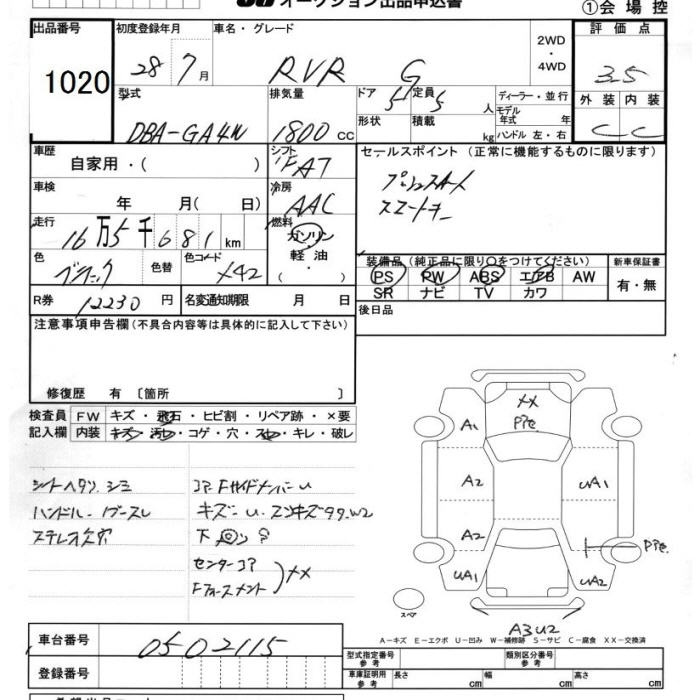 オークション出品申込書
①会場控
出品番号
1020
初度登録年月
28 7月
車名・グレード
RVR G
2WD
・
4WD
評価点
3.5
外装 内装
C C
型式
DBA-GA4W
排気量
1800 CC
ドア 5
定員 5 人
形状
積載 kg
ディーラー・並行
モデル年式 年
ハンドル 左・右
車歴
自家用・( )
シフト
FAT
セールスポイント(正常に機能するものに限ります)
プッシュスタート
スマートキー
車検
年 月( 日)
冷房
AAC
走行
16万5千681km
燃料
ガソリン
軽油
( ・ )
色
ブラック
色替
色コード
X42
装備品(純正品に限り○をつけてください)
PS PW ABS エアB AW
SR ナビ TV カワ
新車保証書
有・無
R券
12230円
名変通知期限 月 日
後日品
注意事項申告欄(不具合内容等は具体的に記入して下さい)
修復歴 有〔箇所 〕
検査員記入欄
FW キズ・飛石・ヒビ割・リペア跡・×要
内装 キズ・汚れ・コゲ・穴・スレ・キレ・破レ
シートヘタリ、シミ
ハンドル
ステレオ欠品
コアFサイドメンバーU
センターコア
××
××
A1
A2
UA1
A2
UA1
UA2
スペア
A3U2
A-キズ E-エクボ U-凹み W-補修跡 S-サビ C-腐食 XX-交換済
車台番号
0502115
登録番号
型式指定番号
参考
類別区分番号
参考
車庫証明用
参考
長さ cm
幅 cm
高さ cm